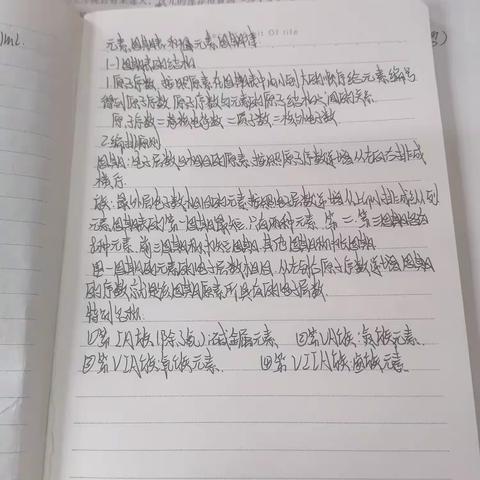 元素周期表和元素周期律
1-1 周期表的结构
1.原子序数:按照元素在周期表中由小到大的顺序给元素编号
得到原子序数,原子序数与元素的原子结构之间的关系
原子序数=核电荷数=质子数=核外电子数
2.编排原则
周期:电子层数目相同的元素,按照原子序数递增从左向右排成
横行.
族:最外层电子数相同的元素按照电子层数递增从上们排成纵列
元素周期表的第一周期最短,只有两种元素,第二、第三周期各有
8种元素.前三周期称为短周期,其他周期称为长周期.
同一周期的元素的电子层数相同,从左到右原子序数递增,周期
的序数就是该周期原素所具有的电子层数.
特别名称:
①第IA族(除氢):碱金属元素 ②第VA族:氮族元素
③第VIA族:氧族元素 ④第VIIA族:卤族元素
ml.